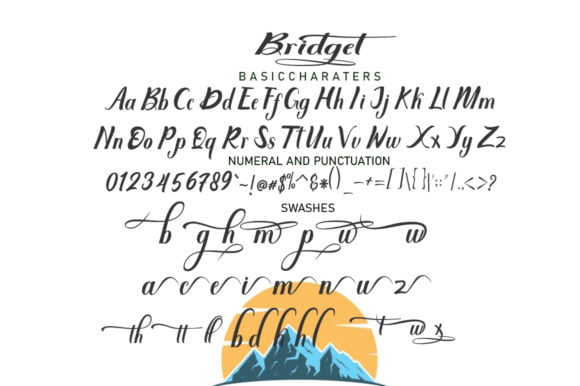 Bridget
BASICCHARATERS
Aa Bb Cc Dd Ee Ff Gg Hh Ii Jj Kk Ll Mm
Nn Oo Pp Qq Rr Ss Tt Uu Vv Ww Xx Yy Zz
NUMERAL AND PUNCTUATION
0123456789`~!@#$%^&*()_-+=[]\{}|":;"/.,<>?
SWASHES
b g h m p w w
a c e i m n u z
th tt ll b d k h l t w x